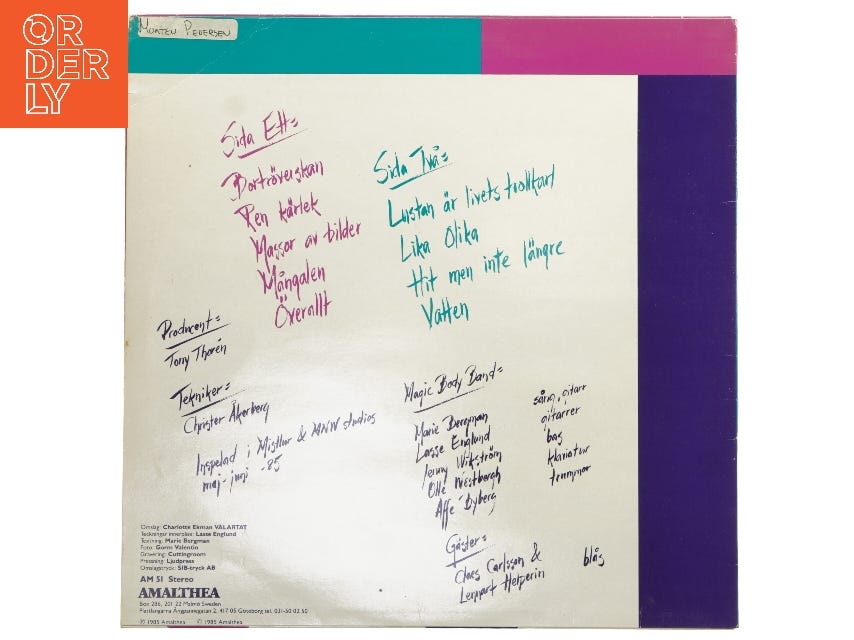 OR
DER
LY
MORTEN PEDERSEN
Sida Ett=
Bortröverskan
Ren kärlek
Massor av bilder
Mångalen
Överallt
Sida Två=
Lustan är livets trollkarl
Lika Olika
Hit men inte längre
Vatten
Producent=
Tony Thorén
Tekniker=
Christer Åkerberg
Inspelad i Mistlur & MNW studios
maj-juni -85
Magic Body Band=
Marie Bergman sång, gitarr
Lasse Englund gitarrer
Jenny Wikström bas
Olle Westbergh klaviatur
Affe Dyberg trummor
Gäster=
Claes Carlsson & blås
Lennart Helperin
Omslag: Charlotte Ekman VALARTAT
Teckningar innerplan: Lasse Englund
Textning: Marie Bergman
Foto: Gorm Valentin
Gravering: Cuttingroom
Pressning: Ljudpress
Omslagstryck: SIB-tryck AB
AM 51 Stereo
AMALTHEA
Box 286, 201 22 Malmö Sweden
Plastlangarna Änggårdsgatan 2, 417 05 Göteborg tel. 031-50 02 50
℗ 1985 Amalthea © 1985 Amalthea